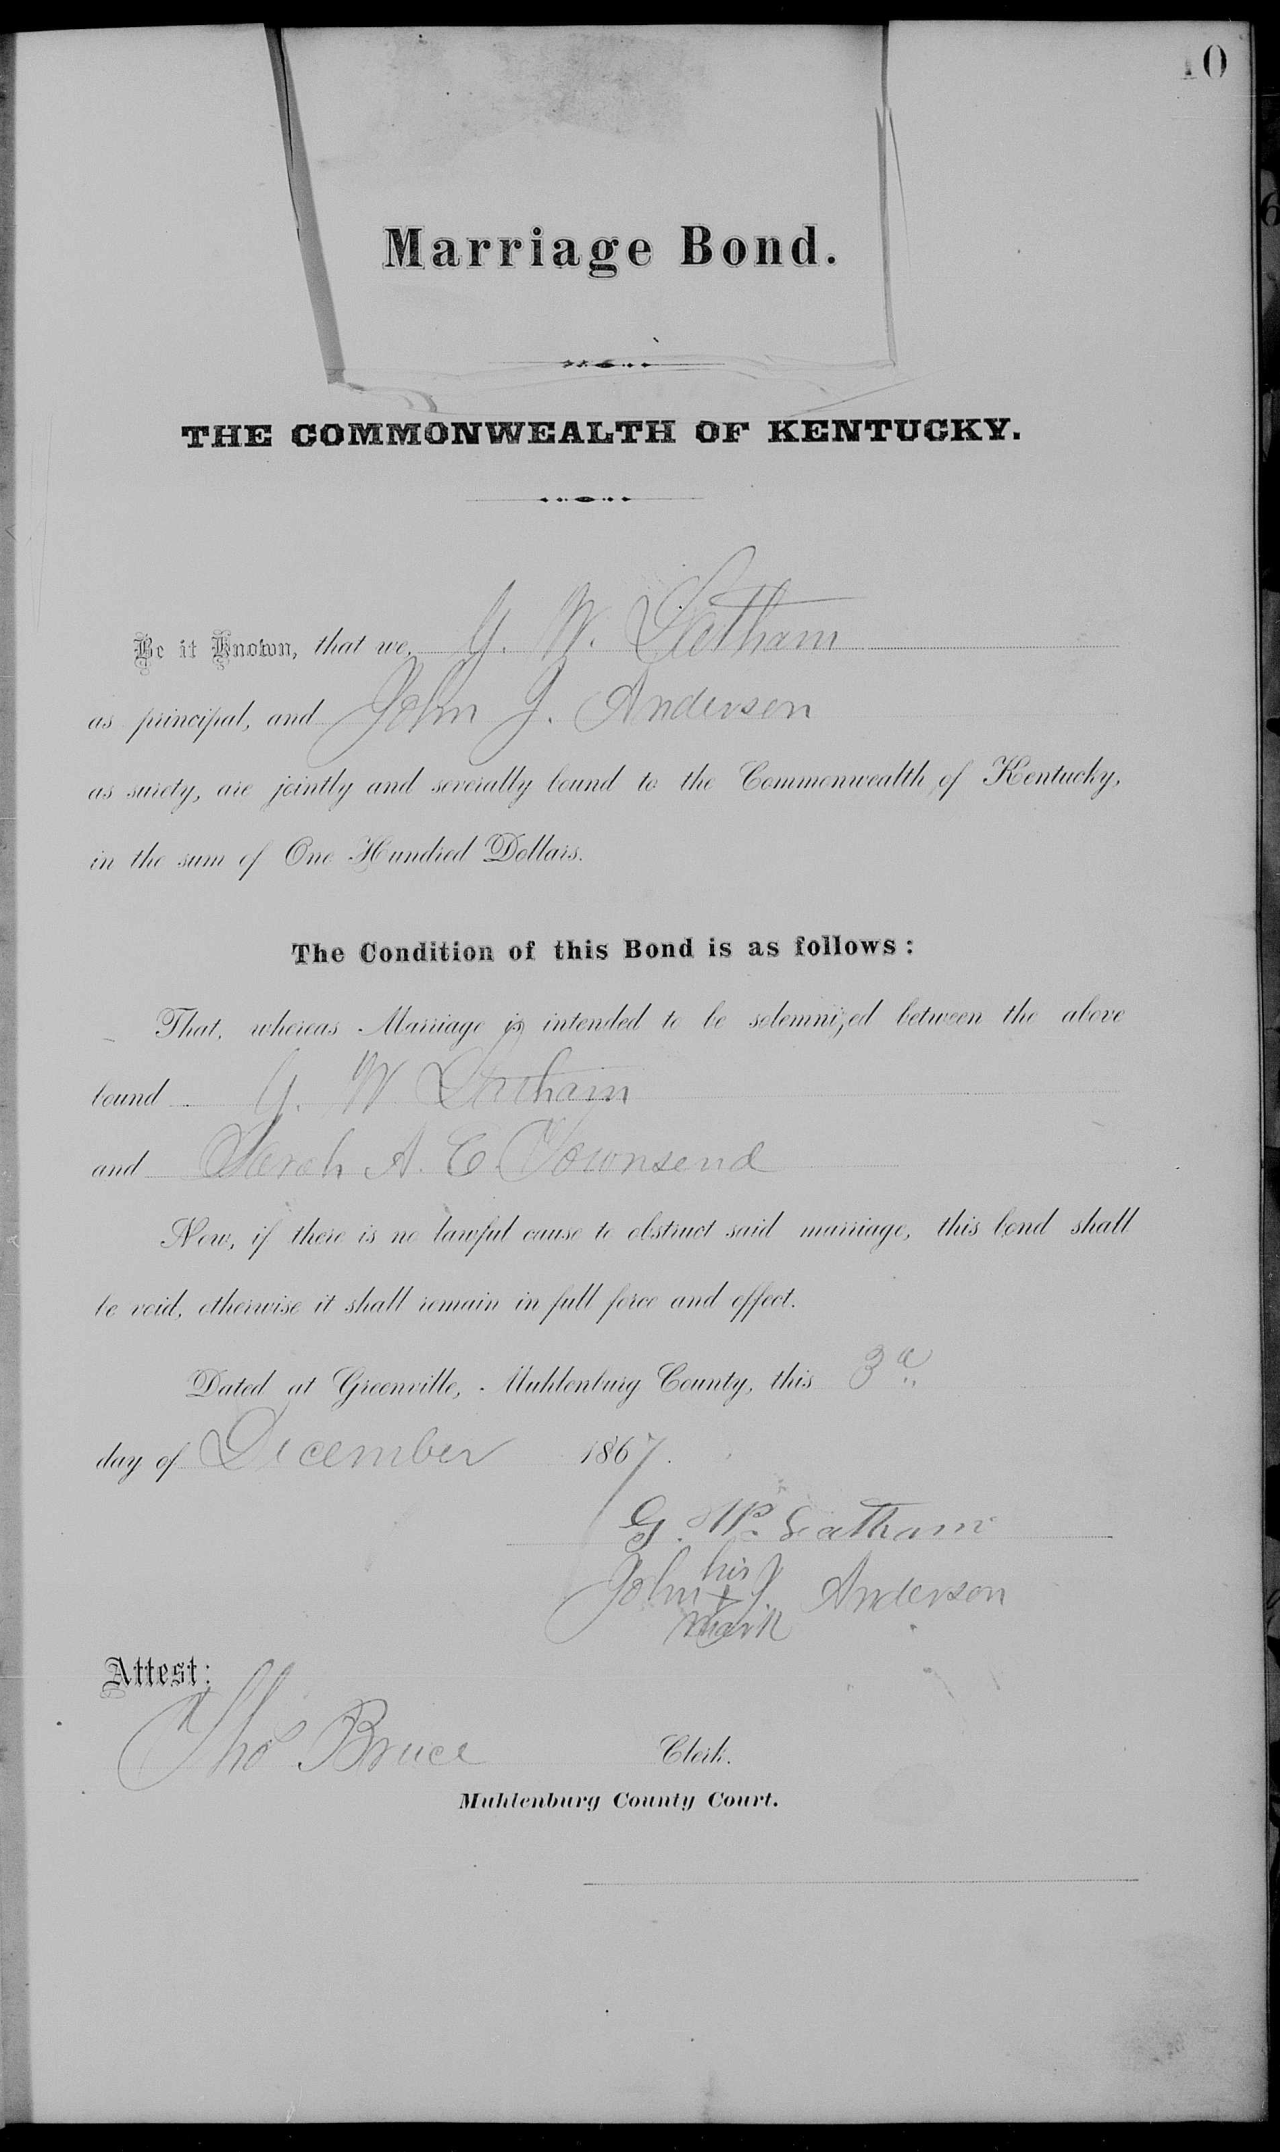 10
Marriage Bond.
THE COMMONWEALTH OF KENTUCKY.
Be it Known, that we, G. W. Latham
as principal, and John J. Anderson
as surety, are jointly and severally bound to the Commonwealth of Kentucky,
in the sum of One Hundred Dollars.
The Condition of this Bond is as follows:
That, whereas Marriage is intended to be solemnized between the above
bound G. W Latham
and Sarah A. E. Townsend
Now, if there is no lawful cause to obstruct said marriage, this bond shall
be void, otherwise it shall remain in full force and effect.
Dated at Greenville, Muhlenburg County, this 3d
day of December 1867.
G. W. Latham
his
John + J. Anderson
mark
Attest:
Thos Bruce Clerk.
Muhlenburg County Court.